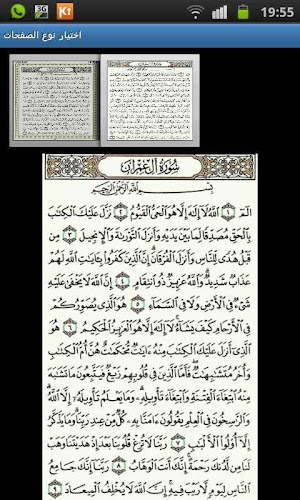 KT
3G
19:55
اختيار نوع الصفحات
سُورَةُ آلِ عِمْرَانَ
بِسْمِ ٱللَّهِ ٱلرَّحْمَٰنِ ٱلرَّحِيمِ
الٓمٓ ١ ٱللَّهُ لَآ إِلَٰهَ إِلَّا هُوَ ٱلْحَىُّ ٱلْقَيُّومُ ٢ نَزَّلَ عَلَيْكَ ٱلْكِتَٰبَ
بِٱلْحَقِّ مُصَدِّقًا لِّمَا بَيْنَ يَدَيْهِ وَأَنزَلَ ٱلتَّوْرَىٰةَ وَٱلْإِنجِيلَ ٣ مِن
قَبْلُ هُدًى لِّلنَّاسِ وَأَنزَلَ ٱلْفُرْقَانَ إِنَّ ٱلَّذِينَ كَفَرُوا۟ بِـَٔايَٰتِ ٱللَّهِ لَهُمْ
عَذَابٌ شَدِيدٌ وَٱللَّهُ عَزِيزٌ ذُو ٱنتِقَامٍ ٤ إِنَّ ٱللَّهَ لَا يَخْفَىٰ عَلَيْهِ
شَىْءٌ فِى ٱلْأَرْضِ وَلَا فِى ٱلسَّمَآءِ ٥ هُوَ ٱلَّذِى يُصَوِّرُكُمْ
فِى ٱلْأَرْحَامِ كَيْفَ يَشَآءُ لَآ إِلَٰهَ إِلَّا هُوَ ٱلْعَزِيزُ ٱلْحَكِيمُ ٦
هُوَ ٱلَّذِىٓ أَنزَلَ عَلَيْكَ ٱلْكِتَٰبَ مِنْهُ ءَايَٰتٌ مُّحْكَمَٰتٌ هُنَّ أُمُّ ٱلْكِتَٰبِ
وَأُخَرُ مُتَشَٰبِهَٰتٌ فَأَمَّا ٱلَّذِينَ فِى قُلُوبِهِمْ زَيْغٌ فَيَتَّبِعُونَ مَا تَشَٰبَهَ
مِنْهُ ٱبْتِغَآءَ ٱلْفِتْنَةِ وَٱبْتِغَآءَ تَأْوِيلِهِۦ وَمَا يَعْلَمُ تَأْوِيلَهُۥٓ إِلَّا ٱللَّهُ
وَٱلرَّٰسِخُونَ فِى ٱلْعِلْمِ يَقُولُونَ ءَامَنَّا بِهِۦ كُلٌّ مِّنْ عِندِ رَبِّنَا وَمَا يَذَّكَّرُ
إِلَّآ أُو۟لُوا۟ ٱلْأَلْبَٰبِ ٧ رَبَّنَا لَا تُزِغْ قُلُوبَنَا بَعْدَ إِذْ هَدَيْتَنَا وَهَبْ
لَنَا مِن لَّدُنكَ رَحْمَةً إِنَّكَ أَنتَ ٱلْوَهَّابُ ٨ رَبَّنَآ إِنَّكَ جَامِعُ
ٱلنَّاسِ لِيَوْمٍ لَّا رَيْبَ فِيهِ إِنَّ ٱللَّهَ لَا يُخْلِفُ ٱلْمِيعَادَ ٩